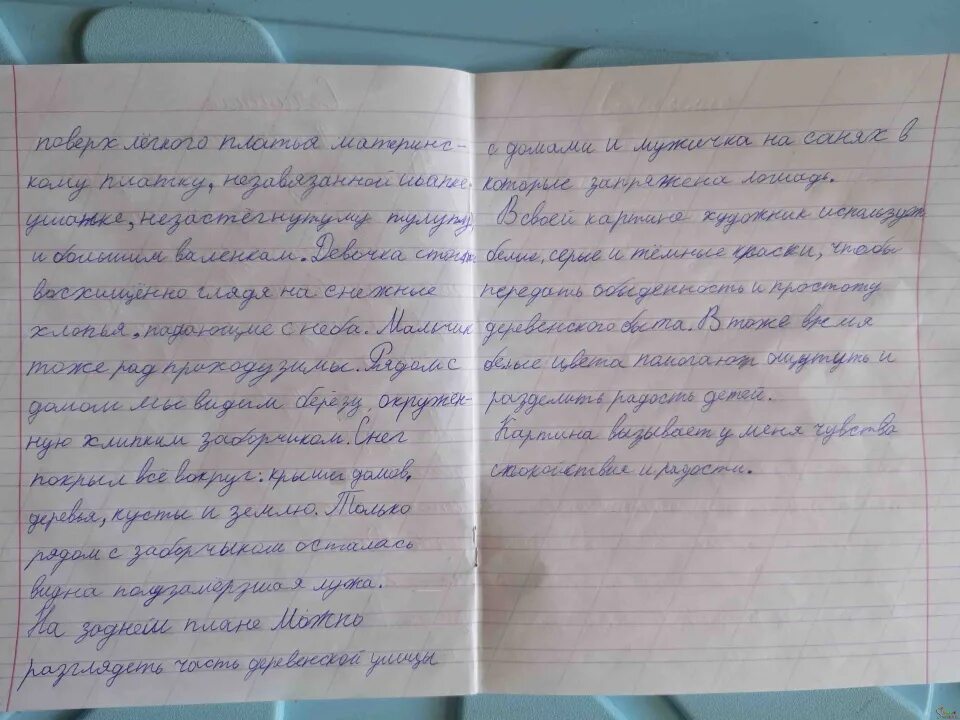 поверх лёгкого платья материнс-
кому платку, незавязанной шапке-
ушанке, незастёгнутому тулупу
и большим валенкам. Девочка стоит,
восхищённо глядя на снежные
хлопья, падающие с неба. Мальчик
тоже рад приходу зимы. Рядом с
домом мы видим берёзу, окружён-
ную хлипким заборчиком. Снег
покрыл всё вокруг: крыши домов,
деревья, кусты и землю. Только
рядом с заборчыком осталась
видна полузамёрзшая лужа.
На заднем плане можно
разглядеть часть деревенской улицы
с домами и мужичка на санях в
которые запряжена лошадь.
В своей картине художник использует
белые, серые и тёмные краски, чтобы
передать обыденность и простоту
деревенского быта. В тоже время
белые цвета помогают ощутуть и
разделить радость детей.
Картина вызывает у меня чувства
спокойствие и радости.